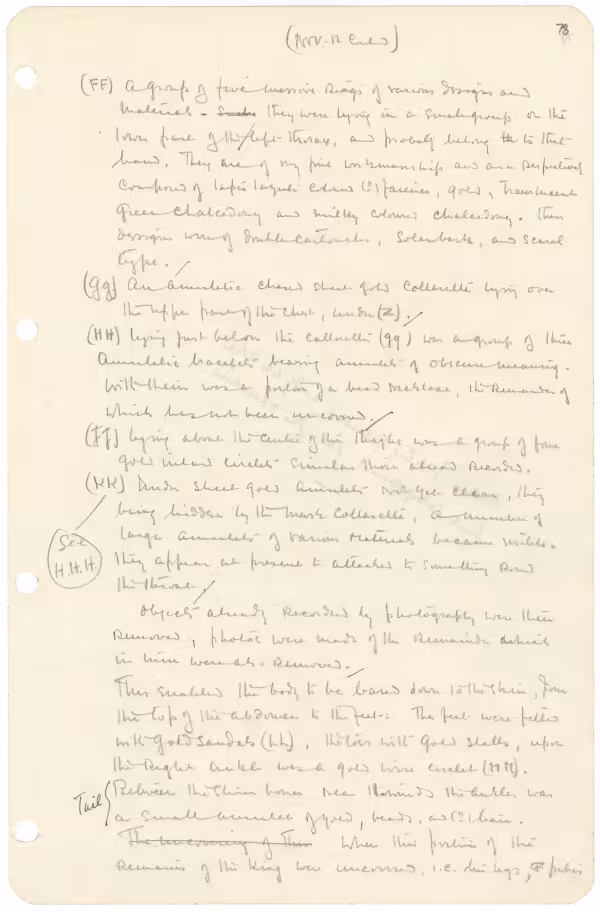 73
(Nov. 12 Contd)
(FF) A group of five massive Rings of various designs and
materials. They were lying in a small group on the
lower part of the left thorax, and probaly belong to that
hand. They are of very fine workmanship and are respectively
composed of lapis lazuli coloured (?) faience, gold, Translucent
Green chalcedony and milky coloured chalcedony. Their
designs were of double cartouches, Solar bark, and Scarab
type.
(GG) An amuletic chased sheet gold Collarette lying over
the upper part of the Chest, under (Z).
(HH) Lying just below the collarette (GG) was a group of three
Amuletic bracelets bearing amulets of obscure meaning.
With them was a portion of a bead necklace, the remainder of
which has not been uncovered.
(JJ) Lying about the centre of the thighs was a group of four
gold inlaid circlets similar those already recorded.
(KK) Under sheet gold amulets not yet clear, they
being hidden by the mask collarette, a number of
large amulets of various materials became visible.
They appear at present to attached to something round
the throat.
See
H.H.H.
Objects already recorded by photography were then
removed, photos were made of the remainder which
in turn were also removed.
This enabled the body to be bared down to the skin, from
the top of the abdomen to the feet: The feet were fitted
with Gold Sandals (LL), the toes with Gold Stalls, upon
the Right ankle was a gold wire circlet (MM).
Tail
Between the Shins bones near the ankles was
a small amulet of gold, beads, and (?) hair.
The uncovering of this When this portion of the
Remains of the King were uncovered, i.e. the legs,